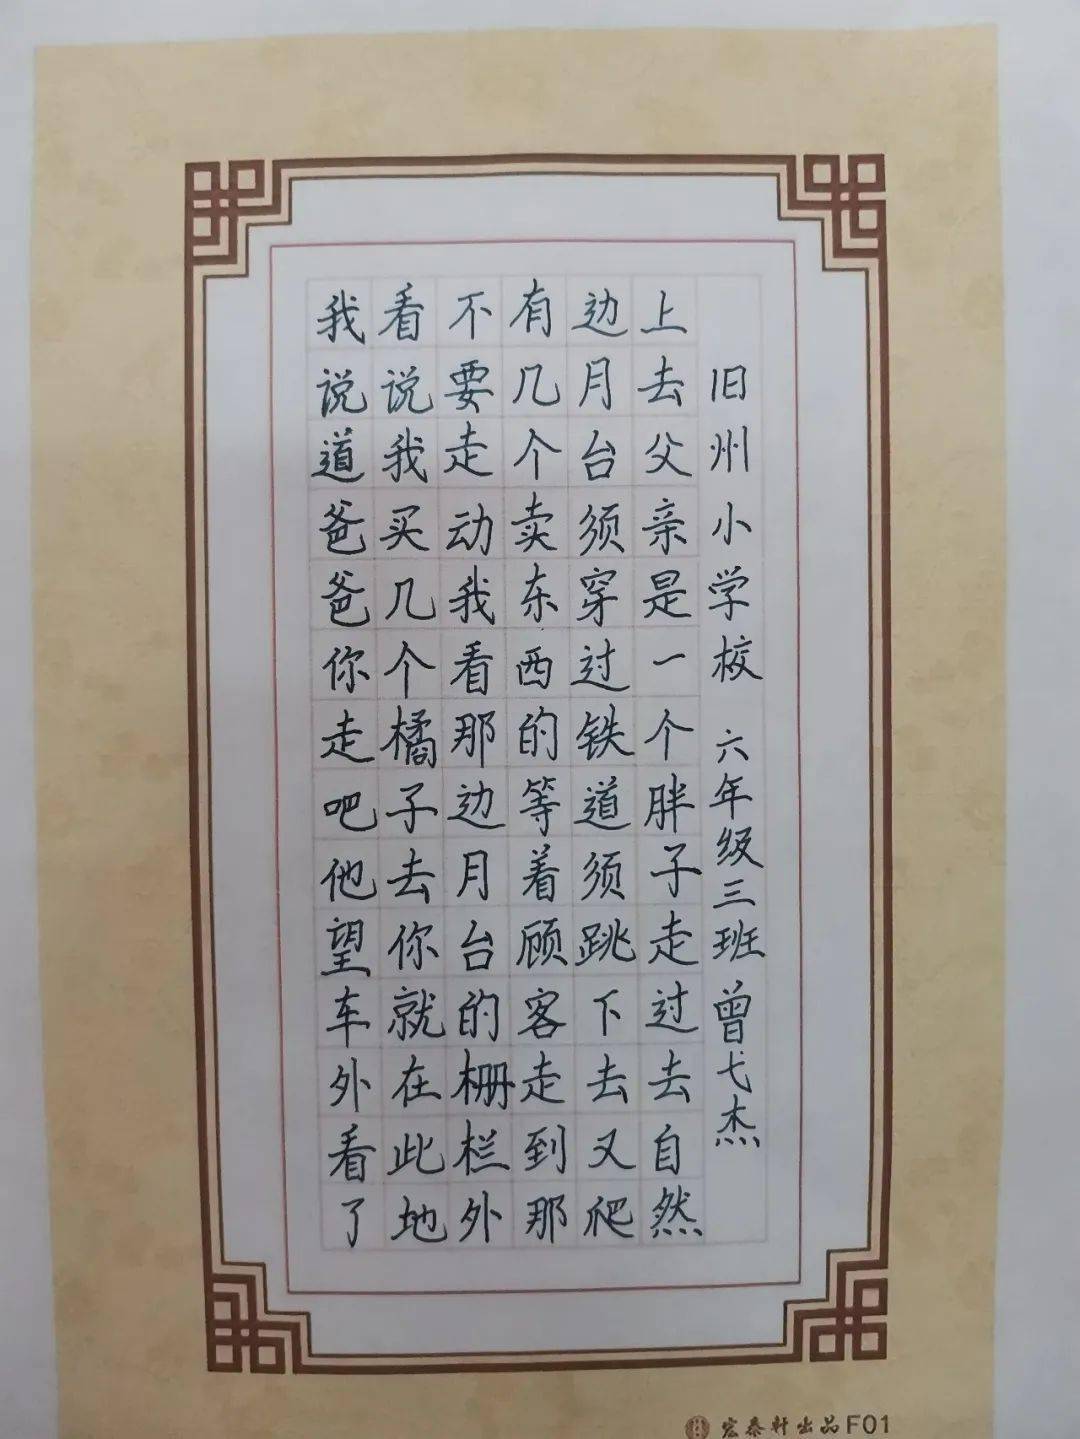 我说道爸爸你走吧他望车外看了
看说我买几个橘子去你就在此地
不要走动我看那边月台的栅栏外
有几个卖东西的等着顾客走到那
边月台须穿过铁道须跳下去又爬
上去父亲是一个胖子走过去自然
旧州小学校 六年级三班曾弋杰
宏泰轩出品F01